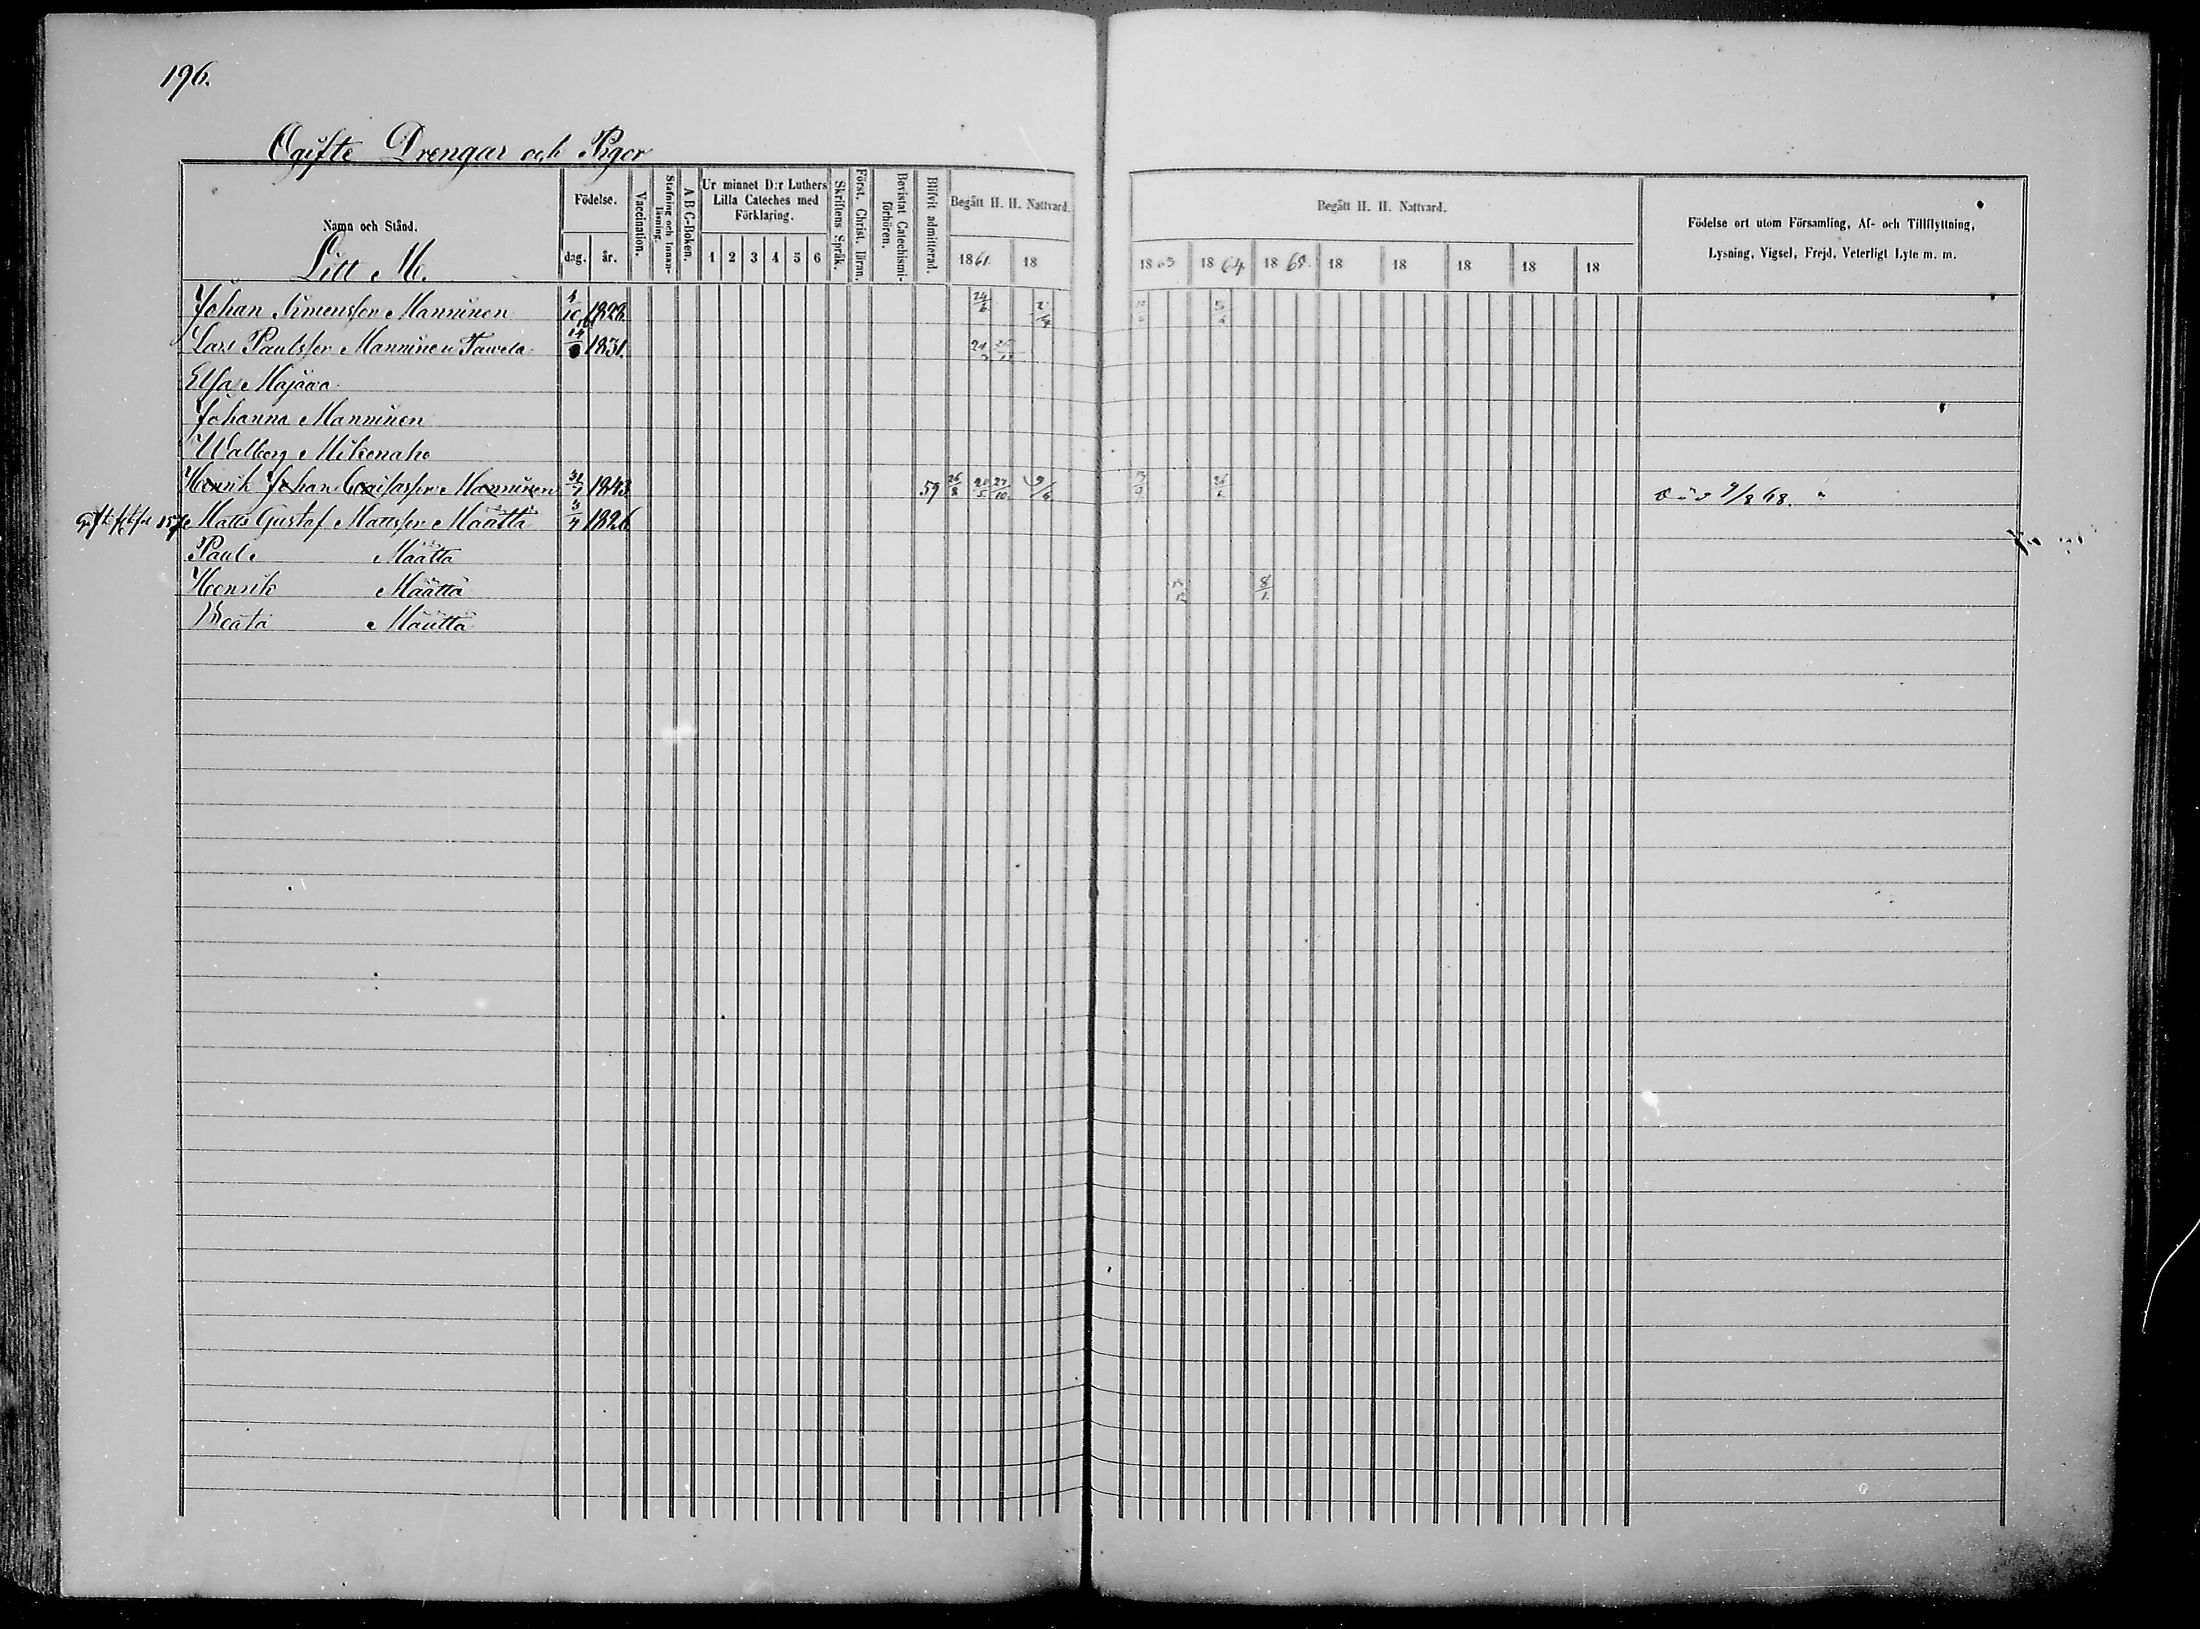 196.
Ogifte Drengar och Pigor
Namn och Stånd.
Litt M.
Födelse.
dag. år.
Vaccination.
Stafning och Innanläsning.
A B C-Boken.
Ur minnet D:r Luthers Lilla Cateches med Förklaring.
1 2 3 4 5 6
Skriftens Språk.
Först. Christ. läran.
Bevistat Catechismiförhören.
Blifvit admitterad.
Begått H. H. Nattvard.
1861. 18
Begått H. H. Nattvard.
1863 1864 1865. 18 18 18 18 18
Födelse ort utom Församling, Af- och Tillflyttning,
Lysning, Vigsel, Frejd, Veterligt Lyte m. m.
Johan Simensson Manninen 4/10 1828 24/6
Lars Paulsson Manninen Tawela 1831.
Elsa Majava
Johanna Manninen
Walborg Mikonaho
Henrik Johan Manninen 1843 59 26/8 20/5 27/10 9/6 9/8 68.
Matts Gustaf Mattsson Määttä 3/7 1826
Paul Määttä
Henrik Määttä 8/1
Beata Määttä